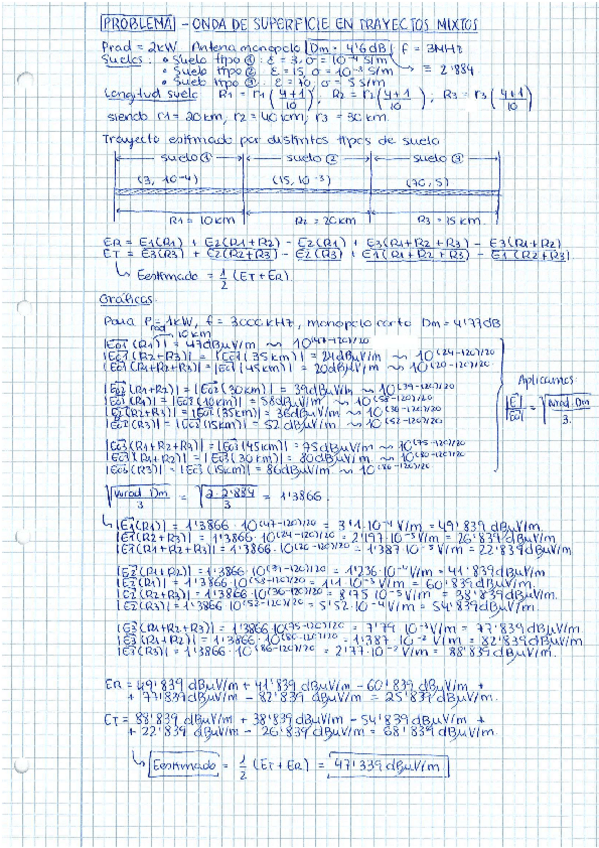 PROBLEMA - ONDA DE SUPERFICIE EN TRAYECTOS MIXTOS
Prad = 2kW Antena monopolo Dm = 4'6dB f = 3MHz
Suelos: • Suelo tipo ①: ε = 3, σ = 10⁻⁴ S/m → = 2'884
• Suelo tipo ②: ε = 15, σ = 10⁻³ S/m
• Suelo tipo ③: ε = 70, σ = 5 S/m
Longitud suelo R1 = r1 (y+1/10), R2 = r2 (y+1/10), R3 = r3 (y+1/10)
siendo r1 = 20km, r2 = 40km, r3 = 30km.
Trayecto estimado por distintos tipos de suelo
suelo ① suelo ② suelo ③
(3, 10⁻⁴) (15, 10⁻³) (70, 5)
R1 = 10km R2 = 20km R3 = 15km
ER = E1(R1) + E2(R1+R2) - E2(R1) + E3(R1+R2+R3) - E3(R1+R2)
ET = E3(R3) + E2(R2+R3) - E2(R3) + E1(R1+R2+R3) - E1(R2+R3)
↳ Eestimado = 1/2 (ET + ER)
Gráficas.
Para Prad = 1kW, f = 3000kHz, monopolo corto Dm = 4'77dB
10km
|E01(R1)| = 47dBμV/m ~ 10^(47-120)/20
|E01(R2+R3)| = |E01(35km)| = 24dBμV/m ~ 10^(24-120)/20
|E01(R1+R2+R3)| = |E01(45km)| = 20dBμV/m ~ 10^(20-120)/20
|E02(R1+R2)| = |E02(30km)| = 39dBμV/m ~ 10^(39-120)/20
|E02(R1)| = |E02(10km)| = 58dBμV/m ~ 10^(58-120)/20
|E02(R2+R3)| = |E02(35km)| = 36dBμV/m ~ 10^(36-120)/20
|E02(R3)| = |E02(15km)| = 52dBμV/m ~ 10^(52-120)/20
Aplicamos
|E|/|E0| = √(Wrad·Dm/3)
|E03(R1+R2+R3)| = |E03(45km)| = 75dBμV/m ~ 10^(75-120)/20
|E03(R1+R2)| = |E03(30km)| = 80dBμV/m ~ 10^(80-120)/20
|E03(R3)| = |E03(15km)| = 86dBμV/m ~ 10^(86-120)/20
√(Wrad·Dm/3) = √(2·2'884/3) = 1'3866.
↳ |E1(R1)| = 1'3866·10^(47-120)/20 = 3'1·10⁻⁴ V/m = 49'839dBμV/m
|E1(R2+R3)| = 1'3866·10^(24-120)/20 = 2'197·10⁻⁵ V/m = 26'839dBμV/m
|E1(R1+R2+R3)| = 1'3866·10^(20-120)/20 = 1'387·10⁻⁵ V/m = 22'839dBμV/m
|E2(R1+R2)| = 1'3866·10^(39-120)/20 = 1'236·10⁻⁴ V/m = 41'839dBμV/m
|E2(R1)| = 1'3866·10^(58-120)/20 = 1'1·10⁻³ V/m = 60'839dBμV/m
|E2(R2+R3)| = 1'3866·10^(36-120)/20 = 8'75·10⁻⁵ V/m = 38'839dBμV/m
|E2(R3)| = 1'3866·10^(52-120)/20 = 5'52·10⁻⁴ V/m = 54'839dBμV/m
|E3(R1+R2+R3)| = 1'3866·10^(75-120)/20 = 7'79·10⁻³ V/m = 77'839dBμV/m
|E3(R1+R2)| = 1'3866·10^(80-120)/20 = 1'387·10⁻² V/m = 82'839dBμV/m
|E3(R3)| = 1'3866·10^(86-120)/20 = 2'77·10⁻² V/m = 88'839dBμV/m.
ER = 49'839dBμV/m + 41'839dBμV/m - 60'839dBμV/m +
+ 77'839dBμV/m - 82'839dBμV/m = 25'839dBμV/m.
ET = 88'839dBμV/m + 38'839dBμV/m - 54'839dBμV/m +
+ 22'839dBμV/m - 26'839dBμV/m = 68'839dBμV/m.
↳ Eestimado = 1/2 (ET + ER) = 47'339dBμV/m.